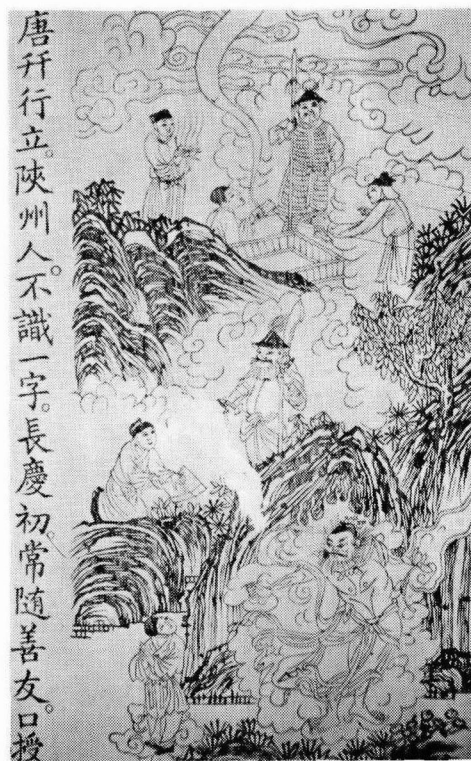 唐幵行立。陝州人。不識一字。長慶初。常隨善友。口授